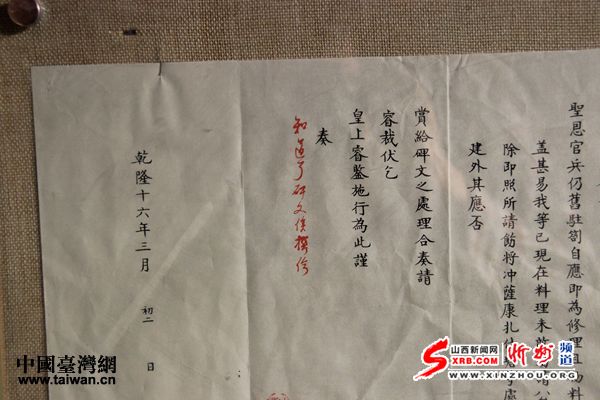 聖恩官兵仍舊駐劄自應即為修理且
蓋甚易我等已現在料理未
除即照所請飭將冲薩康扎什
建外其應否
賞給碑文之處理合奏請
睿裁伏乞
皇上睿鑒施行為此謹
奏
知道了碑文候撰給
乾隆十六年三月 初二 日
中國臺灣網
www.taiwan.cn
山西新闻网
XRB.COM
忻州
频道
WWW.XINZHOU.ORG